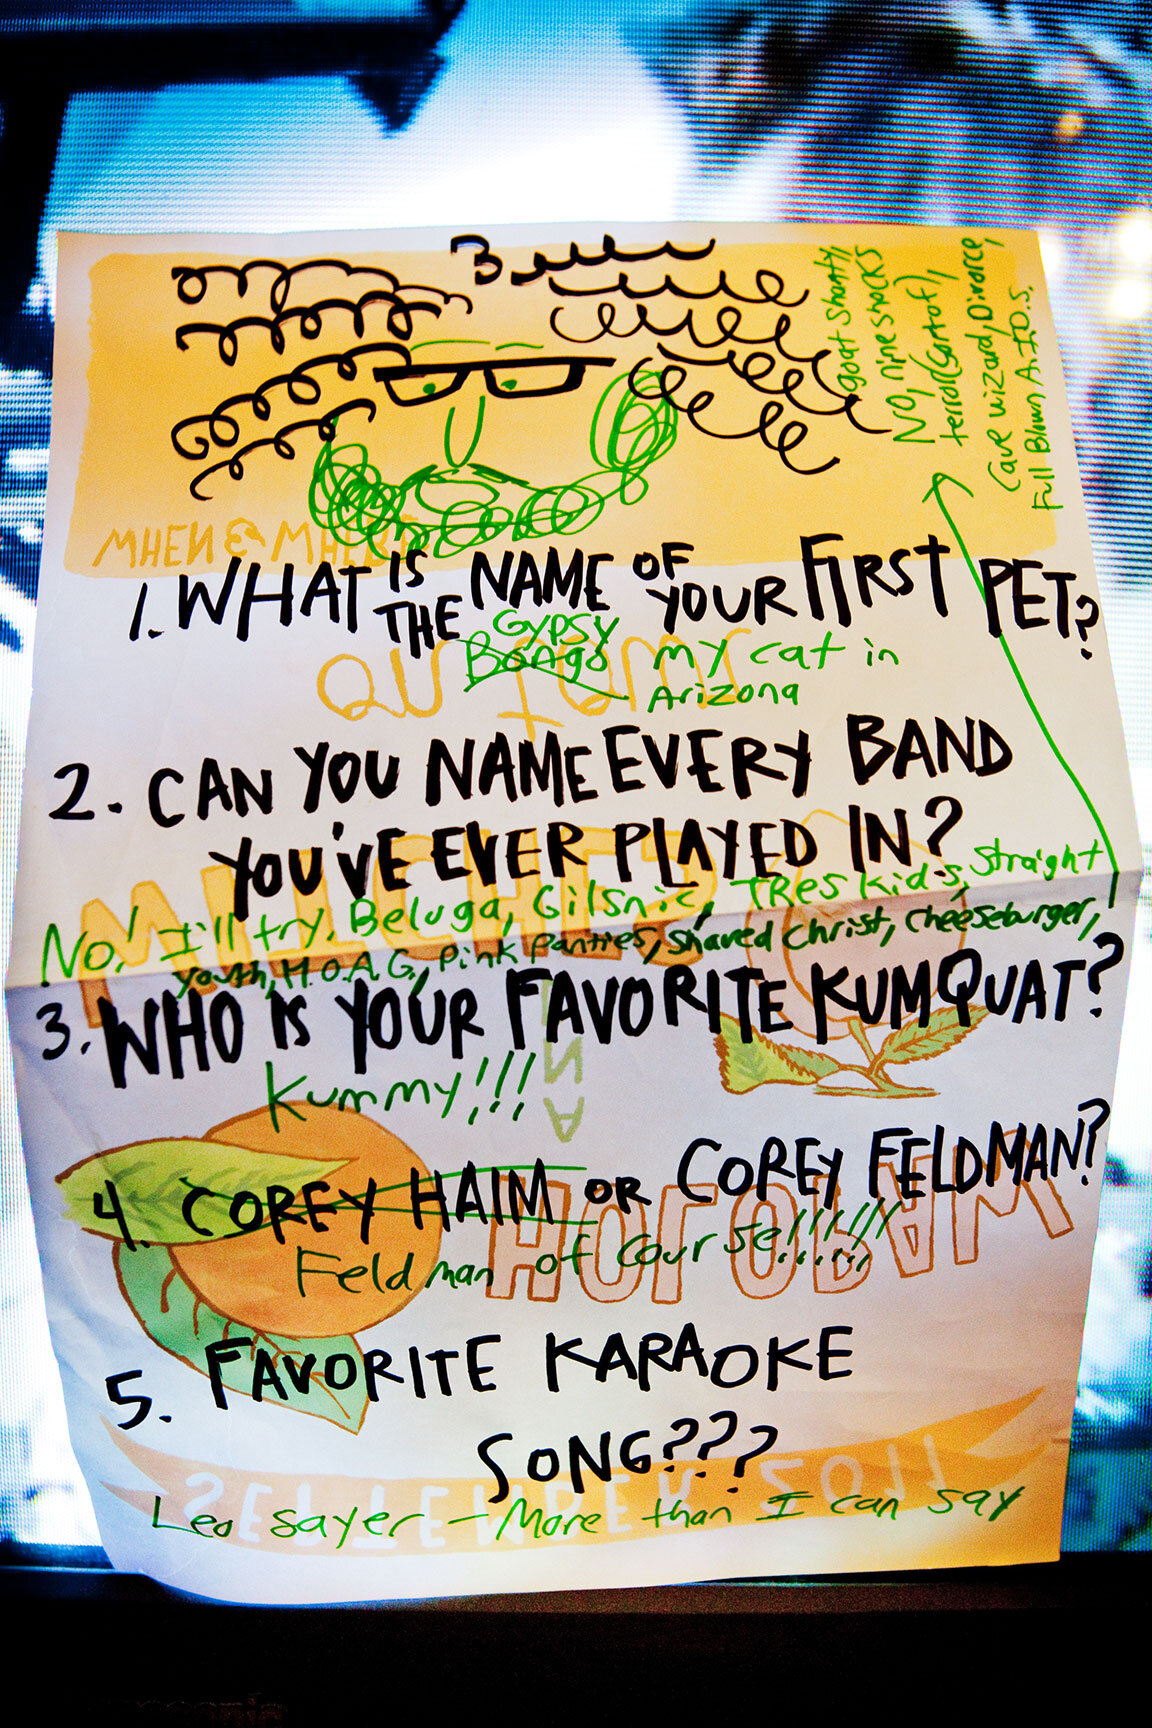 goat Shanty,
No, nine shocks
terror (Sort of),
Cave wizard, Divorce,
Full Blown A.I.D.S.
1. WHAT IS THE NAME OF YOUR FIRST PET?
Gypsy
Bongo my cat in
Arizona
2. CAN YOU NAME EVERY BAND
YOU'VE EVER PLAYED IN?
No! I'll try. Beluga, Gilsnic, TRes Kids, Straight
youth, H.O.A.G., Pink Panties, Shaved Christ, Cheeseburger,
3. WHO IS YOUR FAVORITE KUMQUAT?
Kummy!!!
4. COREY HAIM OR COREY FELDMAN?
Feldman of course!!!!!!
5. FAVORITE KARAOKE
SONG???
SEPTEMBER 2011
Leo Sayer - More than I can say